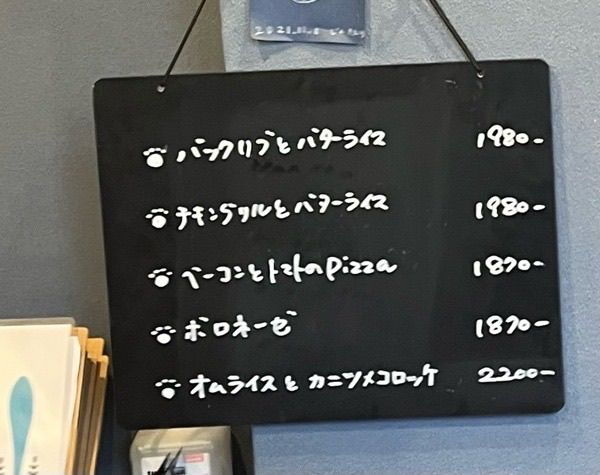 バックリブとバターライス 1980-
チキングリルとバターライス 1980-
ベーコンとトマトのpizza 1870-
ボロネーゼ 1870-
オムライスとカニツメコロッケ 2200-